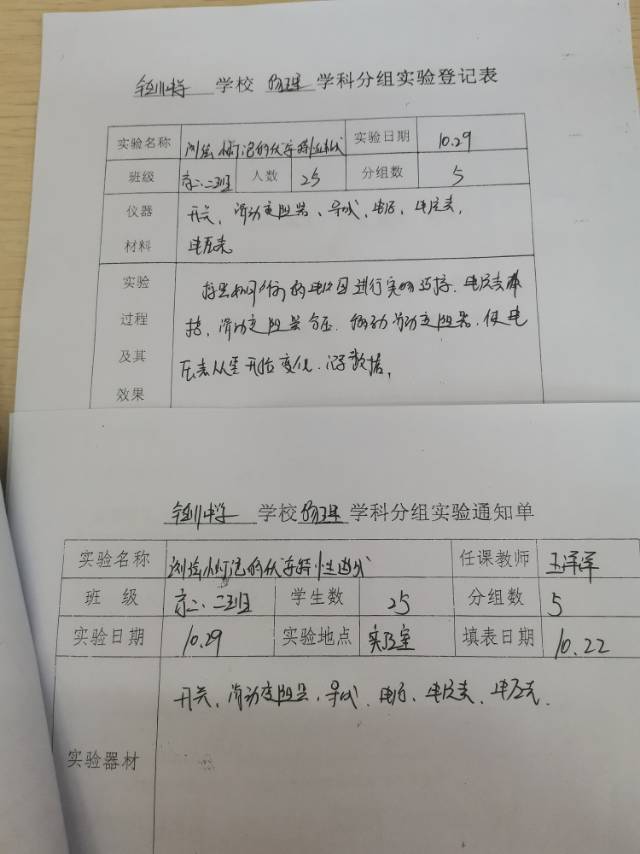 学校 物理 学科分组实验登记表
实验名称 测绘小灯泡的伏安特性曲线 实验日期 10.29
班级 高二.二班 人数 25 分组数 5
仪器 开关、滑动变阻器、导线、电源、电流表、
材料 电压表
实验
过程 接、滑动变阻器分压、移动滑动变阻器、使电
及其 压表从零开始变化.记录数据。
效果
学校 物理 学科分组实验通知单
实验名称 测绘小灯泡的伏安特性曲线 任课教师 王洋洋
班 级 高二.二班 学生数 25 分组数 5
实验日期 10.29 实验地点 实验室 填表日期 10.22
开关、滑动变阻器、导线、电源、电流表、电压表.
实验器材